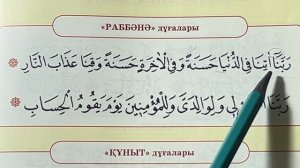 «РАББӘНӘ» дұғалары
رَبَّنَا آتِنَا فِي الدُّنْيَا حَسَنَةً وَفِي الْآخِرَةِ حَسَنَةً وَقِنَا عَذَابَ النَّارِ
رَبَّنَا لِي وَلِوَالِدَيَّ وَلِلْمُؤْمِنِينَ يَوْمَ يَقُومُ الْحِسَابُ
«ҚҰНЫТ» дұғалары